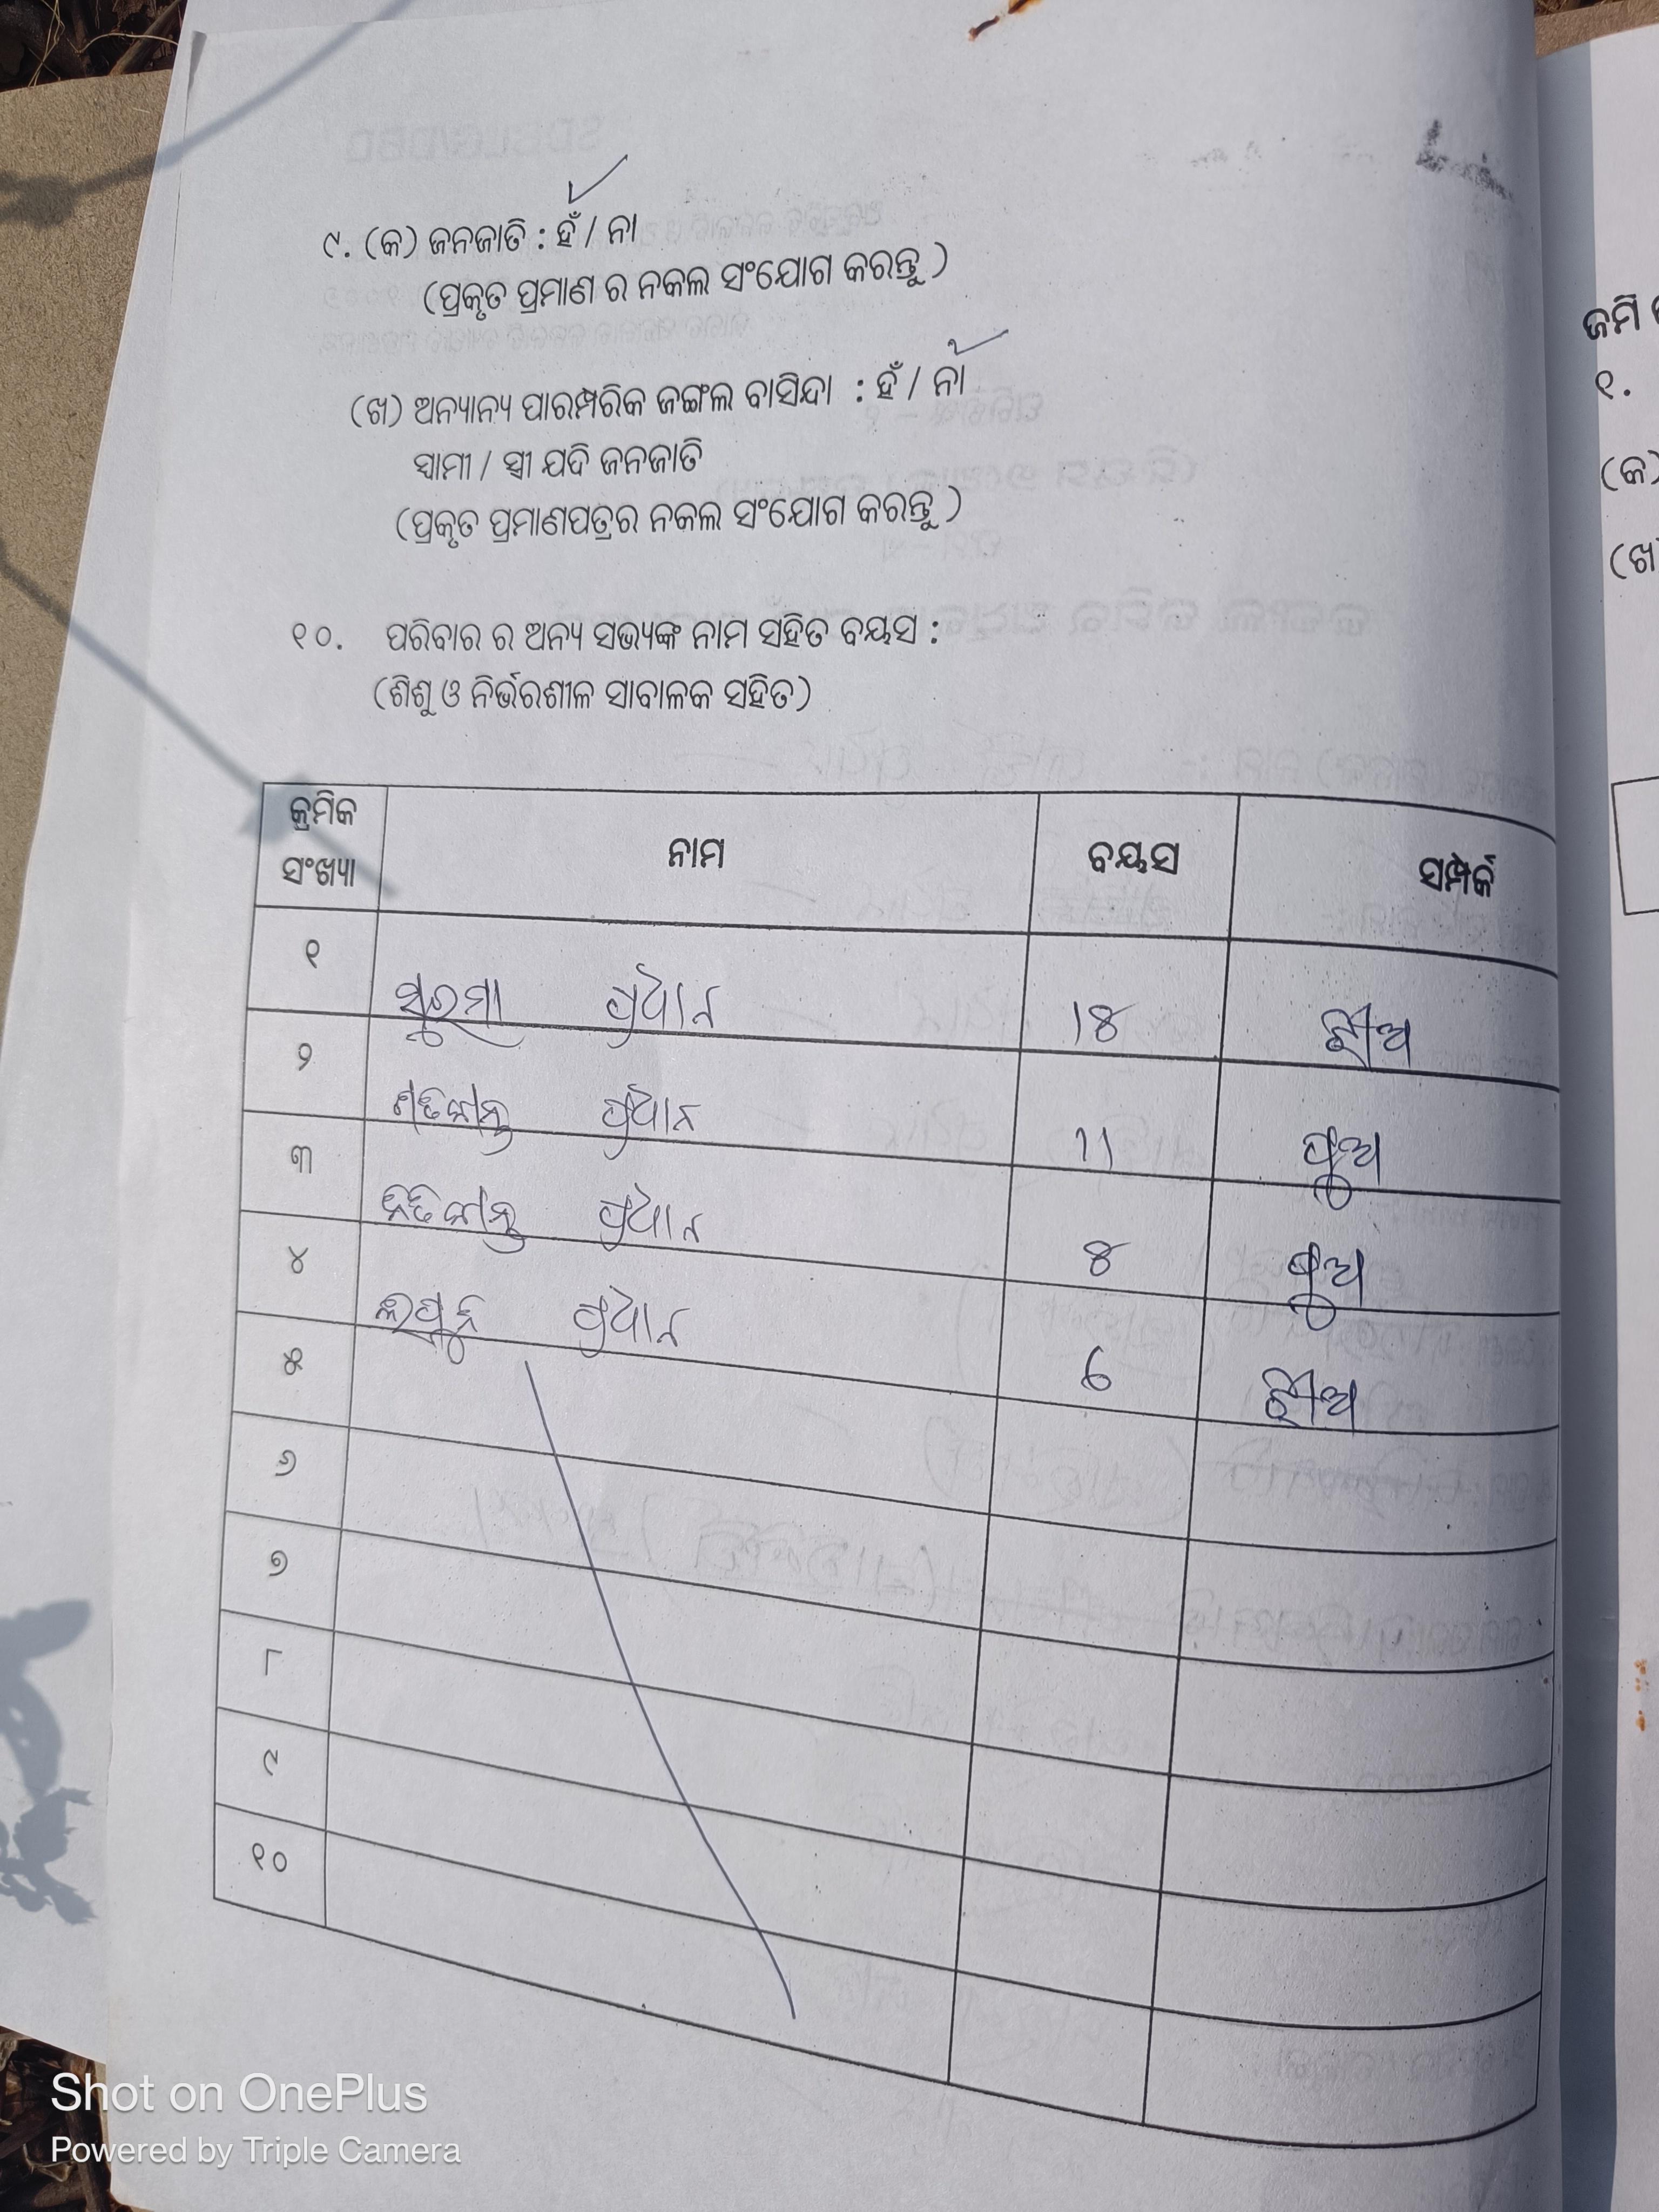 ୯. (କ) ଜନଜାତି : ହଁ / ନା
(ପ୍ରକୃତ ପ୍ରମାଣ ର ନକଲ ସଂଯୋଗ କରନ୍ତୁ)
(ଖ) ଅନ୍ୟାନ୍ୟ ପାରମ୍ପରିକ ଜଙ୍ଗଲ ବାସିନ୍ଦା : ହଁ / ନା
ସ୍ୱାମୀ / ସ୍ତ୍ରୀ ଯଦି ଜନଜାତି
(ପ୍ରକୃତ ପ୍ରମାଣପତ୍ରର ନକଲ ସଂଯୋଗ କରନ୍ତୁ)
୧୦. ପରିବାର ର ଅନ୍ୟ ସଭ୍ୟଙ୍କ ନାମ ସହିତ ବୟସ :
(ଶିଶୁ ଓ ନିର୍ଭରଶୀଳ ସାବାଳକ ସହିତ)
କ୍ରମିକ ସଂଖ୍ୟା ନାମ ବୟସ ସମ୍ପର୍କ
୧ ପ୍ରଧାନ ଝୀଅ
୨ ପ୍ରଧାନ 11 ପୁଅ
୩ ପ୍ରଧାନ ୪ ପୁଅ
୪ ପ୍ରଧାନ 6 ଝୀଅ
୫
୬
୭
୮
୯
୧୦
ଜମି
୧.
(କ)
(ଖ)
Shot on OnePlus
Powered by Triple Camera